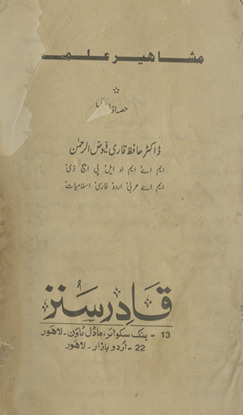 مشاهیر علمـ
حصہ اول
ڈاکٹر حافظ قاری فیوض الرحمٰن
ایم اے ایم او ایل پی ایچ ڈی
ایم اے عربی اردو فارسی اسلامیات
قادر سنز
13 - بنک سکوائر، ماڈل ٹاؤن - لاهور
22 - اُردو بازار - لاهور